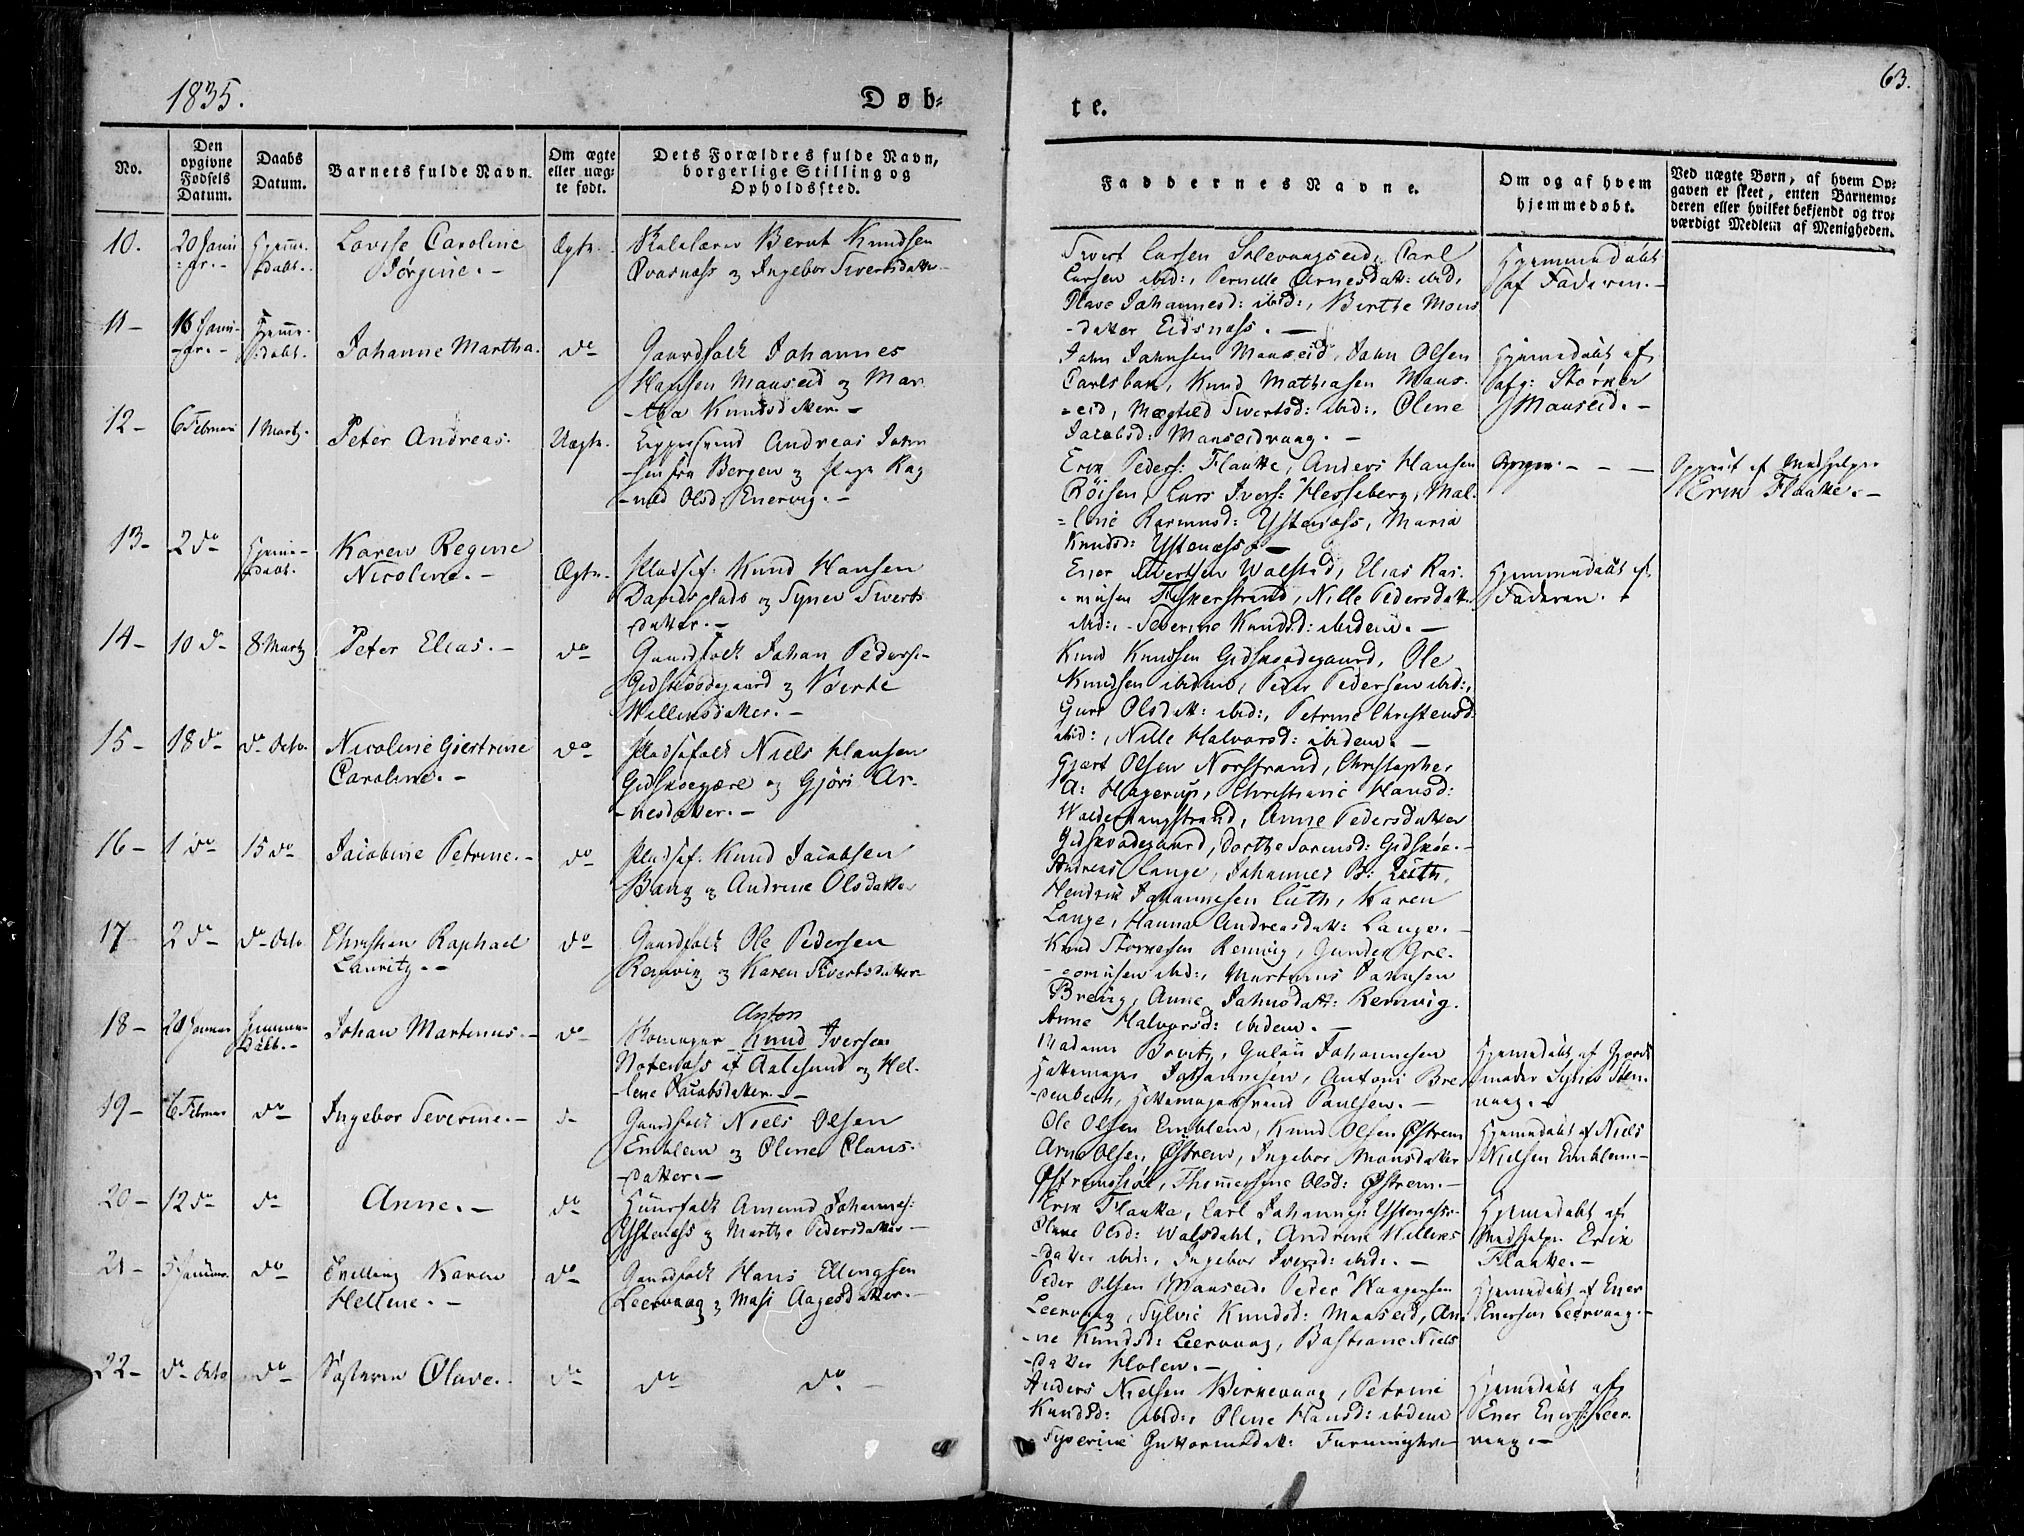 1835.
Døb-
te.
63.
No.
Den opgivne Fødsels Datum.
Daabs Datum.
Barnets fulde Navn.
Om ægte eller uæg-
te født.
Dets Forældres fulde Navn,
borgerlige Stilling og
Opholdssted.
Faddernes Navne.
Om og af hvem
hjemmedøbt.
Ved uægte Børn, af hvem Op-
gaven er skeet, enten Barnemo-
deren eller hvilket bekjendt og tro-
værdigt Medlem af Menigheden.
10.
20 Janu
Hjemme
døbt.
Lovise Caroline
Jørgine.-
Ægte.
Bernt Knudsen
og Ingebor Siverts
Sivert Larsen Solevaagseid, Carl
Larsen ibid:, Pernille Arnesdatt: ibid,
Olave Johannesd: ibid:, Birthe Mons
-datter Eidsnæss.-
Hjemmedøbt
af Faderen.-
11-
16 Janu-
Hjemme-
døbt.
Johanne Martha.
do
Gaardfolk Johannes
Hansen Mauseid og Mar
-tha Knudsdatter.-
John Johnsen Mauseid, John Olsen
Carlsbak, Knud Mathiasen Maus-
-eid, Sivertsd: ibid:, Olene
Jacobsd: Mauseidvaag.-
Hjemmedøbt af
Mauseid.-
12-
6 Februar
1 Martz.
Peter Andreas.
Uægte.
Andreas John
-sen fra Bergen og Pige Rag
-nild Olsd: Enervig.-
Erik Peders: Flaatte, Anders Hansen
Røisen, Lars Ivers: Hesseberg, Mal-
-lene Rasmusd: Ystenæss, Maria
Knudsd: Ystenæss.-
Opgivet af Medhjelper
Erik Flaatte.-
13-
2 do
Hjemme-
døbt.
Karen Regine
Nicoline.-
Ægte.
Pladsf: Knud Hansen
og Synev Siverts
datter.-
Ener Sivertsen Walstad, Elias Ras-
-musen Fiskerstrand, Nille Pedersdatt
ibid:, Severine Knudsd: ibidem.-
Hjemmedøbt af
Faderen.-
14-
10 do
8 Martz
Peter Elias.-
do
Gaardfolk Johan Peders-
Gidskeødegaard og Berte
Willumsdatter.-
Knud Knudsen Gidskeødegaard, Ole
Knudsen ibidem, Peder Pedersen ibid:,
Guri Olsdatt: ibid:, Petrine Christensd:
ibid:, Nille Halvorsd: ibidem.-
15-
18 do
do dito.
Nicoline Giertrine
Caroline.-
do
Pladsfolk Niels Hansen
Gidskegjære og Gjøri Ar-
nesdatter.-
Gjært Olsen Norstrand, Christopher
A: Hagerup, Christiane Hansd:
Walderhaugstrand, Anne Pedersdatter
Gidskeødegaard, Dorthe Sørensd: Gidske.-
16-
1 do
15 do
Jacobine Petrine.-
do
Pladsf: Knud Jacobsen
Bang og Andrine Olsdatter
Andreas Lange, Johannes B: Lüth,
Hendrik Johannesen Lüth, Karen
Lange, Hanna Andreasdatt: Lange.-
17
2 do
do dito
Christian Raphael
Lauritz.-
do
Gaardfolk Ole Pedersen
Remvig og Karen Sivertsdatter
Knud Storkersen Remvig, Gunder Gre-
-gorriusen ibid:, Martinus Johnsen
Brevig, Anne Johnsdatt: Remvig.
Anne Halvorsd: ibidem.-
18-
20 Januar
Hjemme
døbt.-
Johan Martinus.-
do
Anton
Skomager Knud Iversen
Notenæss af Aalesund og Hel-
-lene Jacobsdatter.-
Madame Brevitz, Johannesen
Hattemager Johannesen, Antoni Bre
-denbech, Paulsen.-
Hjemmedøbt af Gjorde
moder Synev Sten-
vaag.-
19-
6 Februar
do
Ingebor Severine.-
do
Gaardfolk Niels Olsen
Emblem og Olene Claus-
datter.-
Ole Olsen Emblem, Knud Olsen Østrem
Arne Olsen Østrem, Ingebor Monsdatter
Østrem, Olsd: Østrem.-
Hjemmedøbt af Niels
Nielsen Emblem-
20-
12 do
do
Anne.-
do
Huusfolk Amund Johannes:
Ystenæss og Marthe Pedersdatter-
Erik Flaatte, Carl Johannes: Ystenæss-
Olave Olsd: Walsdahl, Andrine Willums
-datter ibid:, Ingebor Iversd: ibid:.-
Hjemmedøbt af
Medhjelper Erik
Flaatte.-
21-
5 Januar.
do
Tvilling Karen
Helline.-
do
Gaardfolk Hans Ellingsen
Leervaag og Masi Aagesdatter.-
Peder Olsen Mauseid, Peder Haagensen
Leervaag, Sylvie Knudsd: Mauseid, An-
-ne Knudsd: Leervaag, Bastiane Niels
-datter Holen.-
Hjemmedøbt af Ener
Enersen Leervaag.-
22-
do dito
do
Søsteren Olave.-
do
do do -
Anders Nielsen Birkevaag, Petrine
Knudsd: ibid:, Olene Hansd: ibidem
Syverine Guttormsdatt:
Hjemmedøbt af
Ener Eners: Leer-
vaag.-